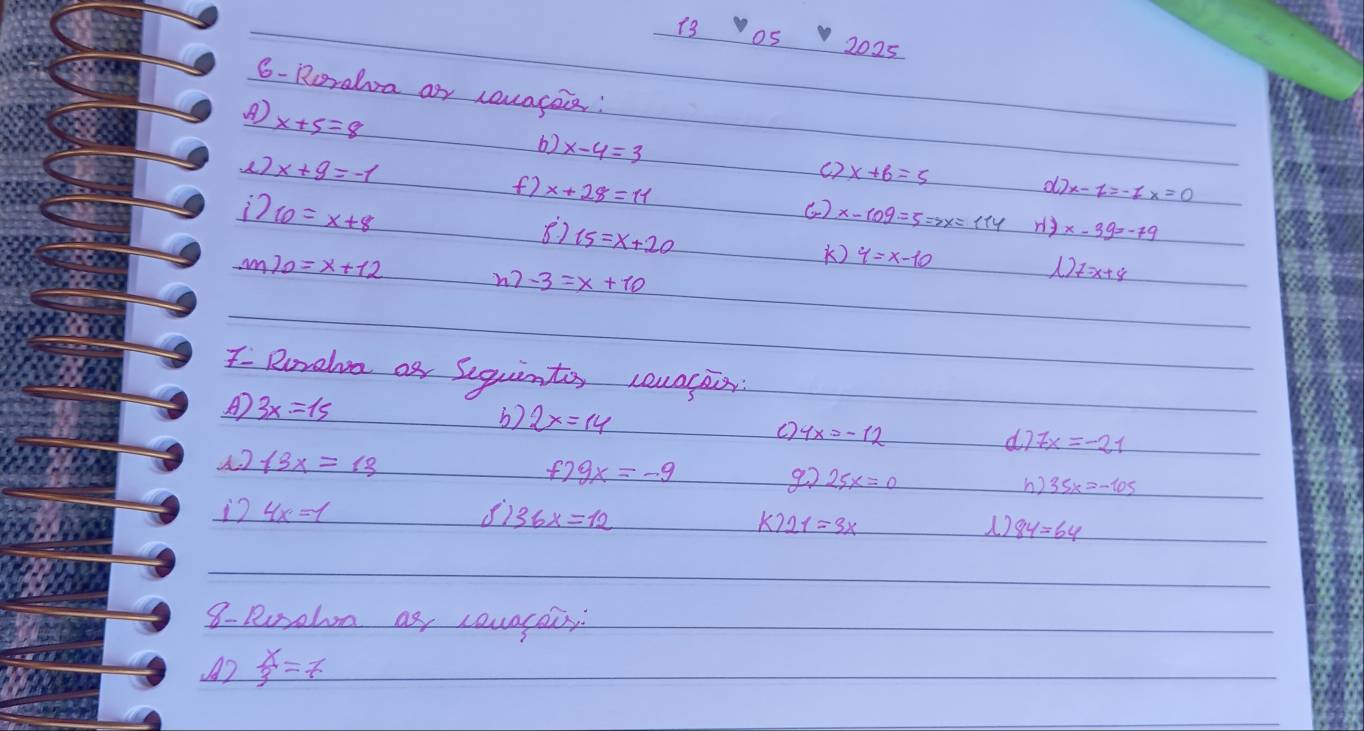 13 ♥ 05 ♥ 2025
6- Resolva as equações:
A) x+5=8 b) x-4=3 c) x+6=5 d) x-7=-7 x=0
e) x+9=-1 f) x+28=11 G) x-109=5 => x=114 H) x-39=-79
i) 10=x+8 j) 15=x+20 k) 4=x-10 l) 7=x+8
m) 0=x+12 n) -3=x+10
7- Resolva as Seguintes equações:
A) 3x=15 b) 2x=14 c) 4x=-12 d) 7x=-21
e) 13x=13 f) 9x=-9 g) 25x=0 h) 35x=-105
i) 4x=1 j) 36x=12 K) 21=3x l) 84=64
8- Resolva as equações:
A) x/3=7